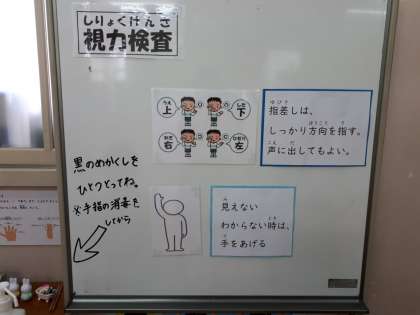 しりょくけんさ
視力検査
うえ
上
した
下
みぎ
右
ひだり
左
ゆびさ
指差しは、
ほうこう さ
しっかり方向を指す。
こえ だ
声に出してもよい。
黒のめかくしを
ひとりとってね。
※手指の消毒を
してから
み
見えない
とき
わからない時は、
て
手をあげる